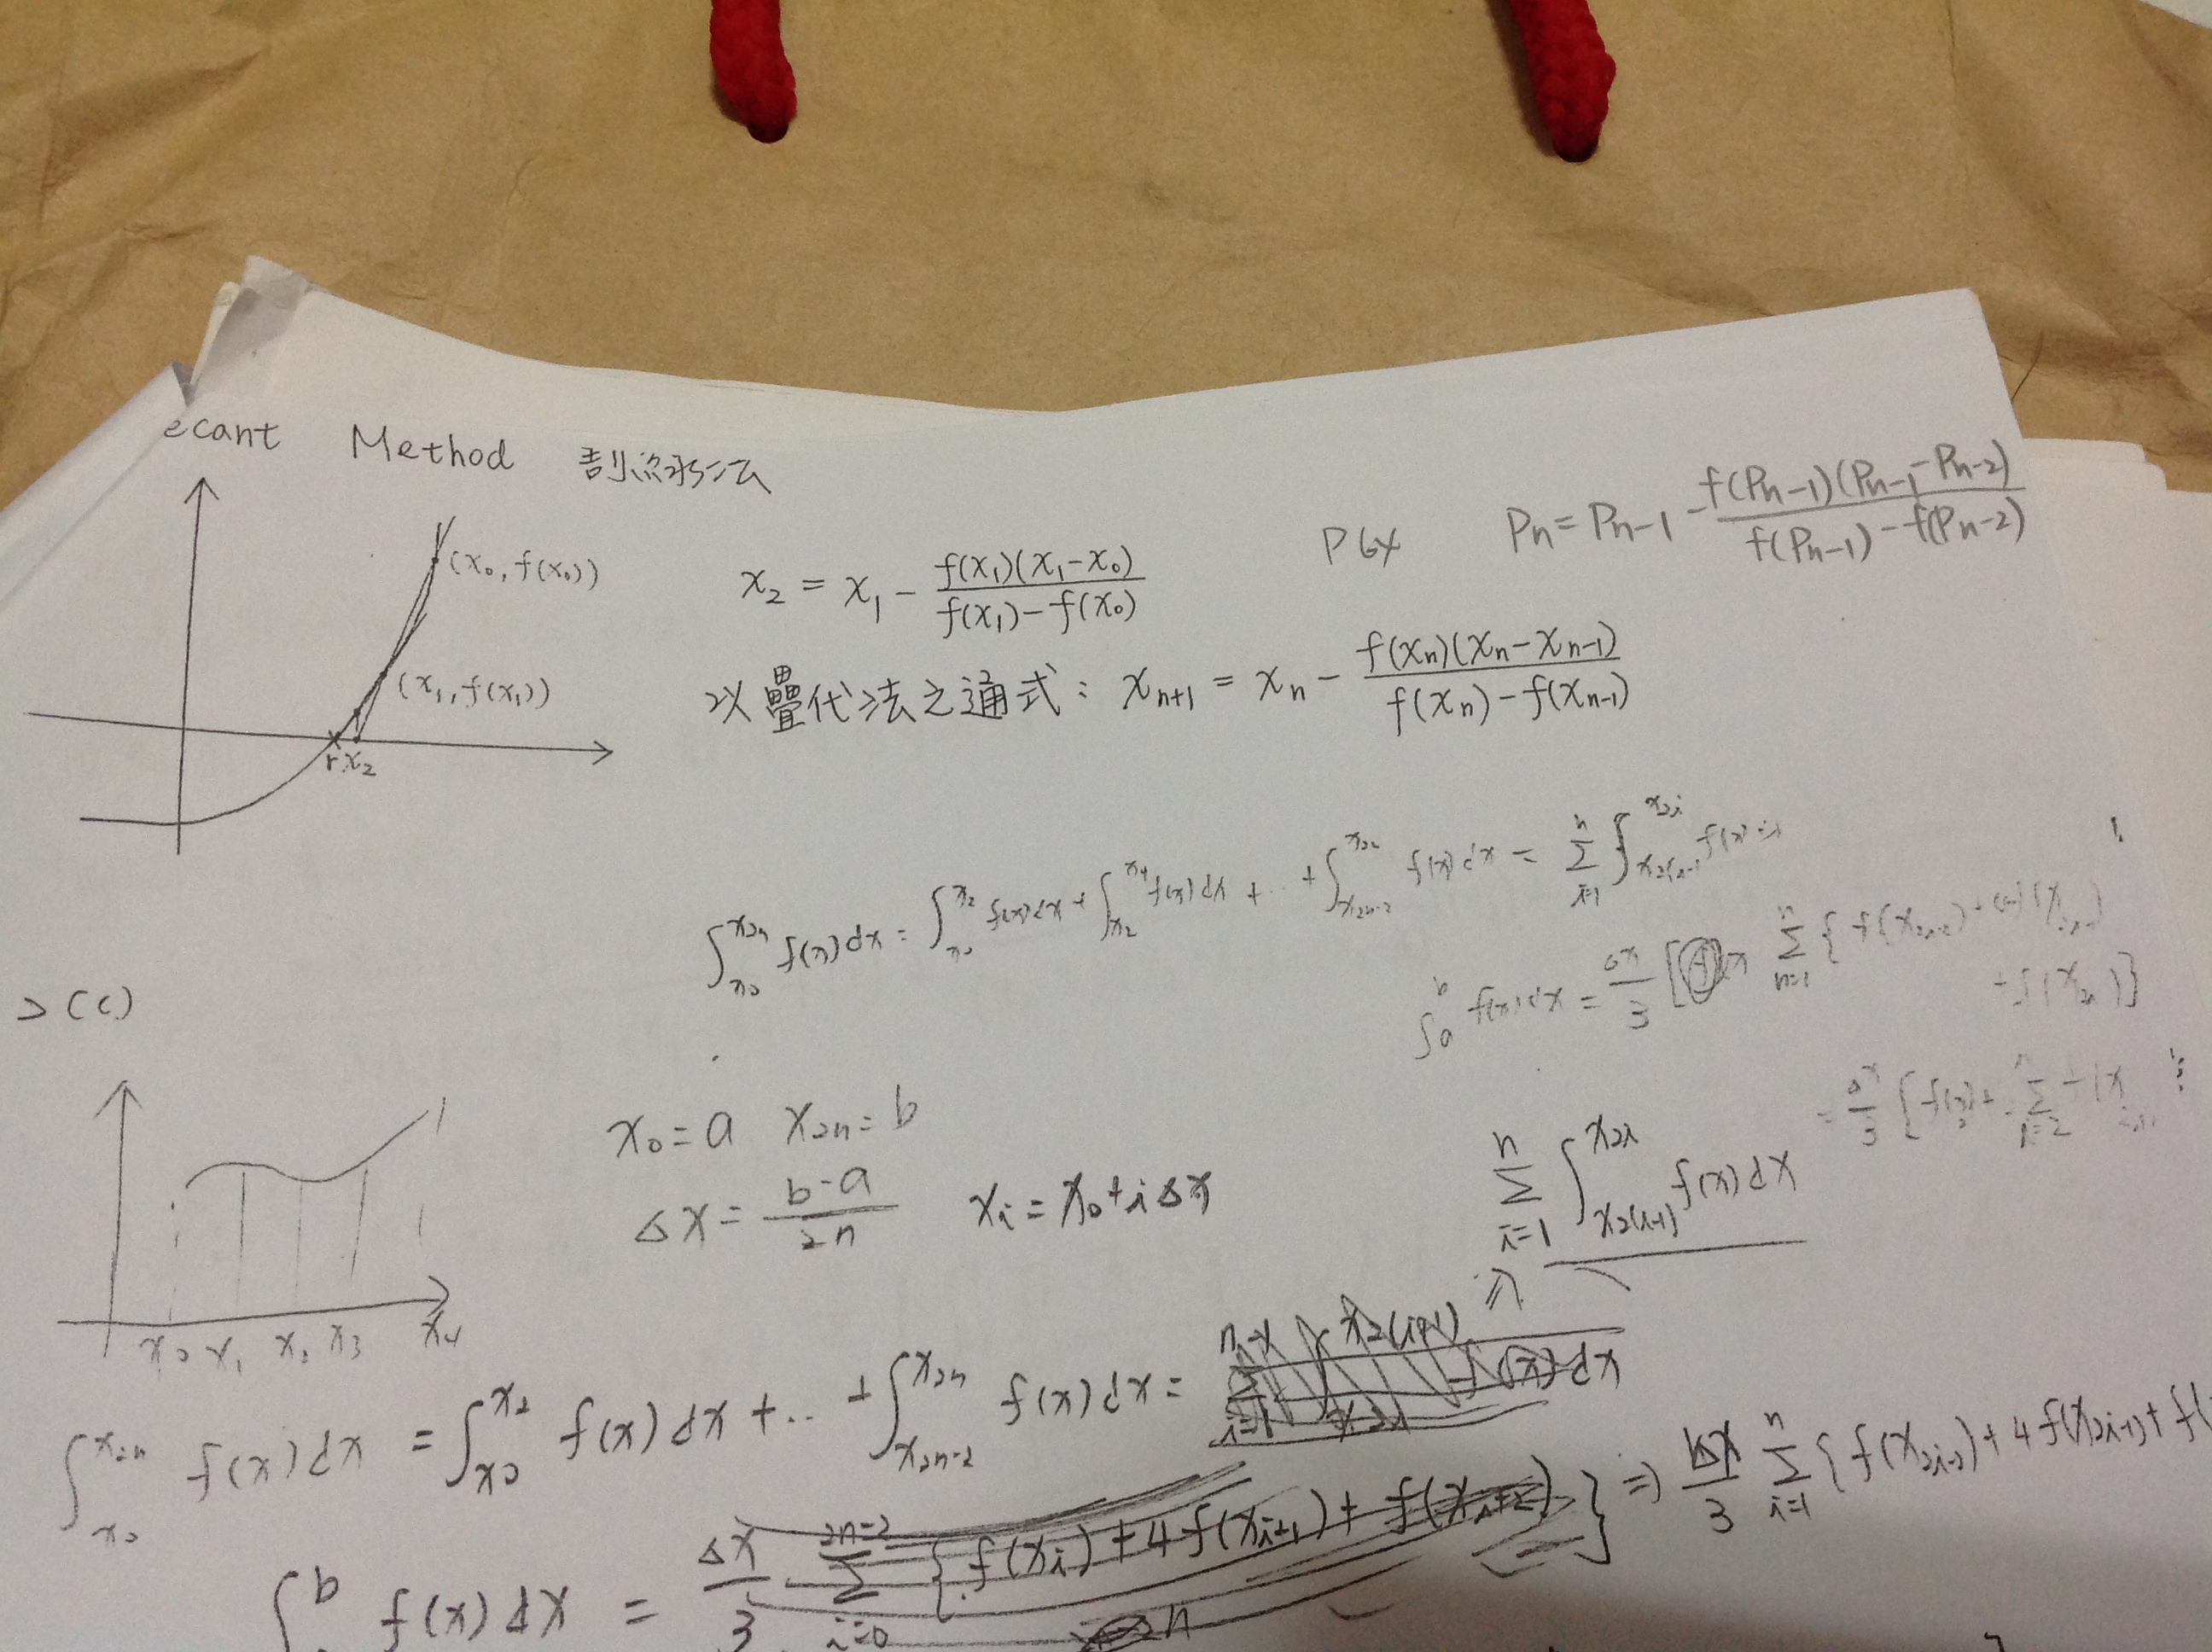 ecant Method 割線法
(x₀, f(x₀))
(x₁, f(x₁))
r x₂
x₂ = x₁ - f(x₁)(x₁-x₀) / f(x₁)-f(x₀)
P64 Pn = Pn-1 - f(Pn-1)(Pn-1-Pn-2) / f(Pn-1)-f(Pn-2)
以疊代法之通式: xn+1 = xn - f(xn)(xn-xn-1) / f(xn)-f(xn-1)
∫x₀^x2n f(x)dx = ∫x₀^x₂ f(x)dx + ∫x₂^x₄ f(x)dx + ... + ∫x2n-2^x2n f(x)dx = Σi=1^n ∫x2(i-1)^x2i f(x)
∫a^b f(x)dx = Δx/3 Σn=1^n { f(
(c)
x₀ = a x2n = b
Δx = b-a / 2n xi = x₀+iΔx
Σi=1^n ∫x2(i-1)^x2i f(x)dx
x₀ x₁ x₂ x₃ x₄
∫x₀^x2n f(x)dx = ∫x₀^x₂ f(x)dx + .. + ∫x2n-2^x2n f(x)dx =
∫^b f(x)dx = Δx/3 Σi=0^2n-2 { f(xi)+4f(xi+1)+f(xi+2) } ⇒ Δx/3 Σi=1^n { f(x2i-2)+4f(x2i-1)+f(